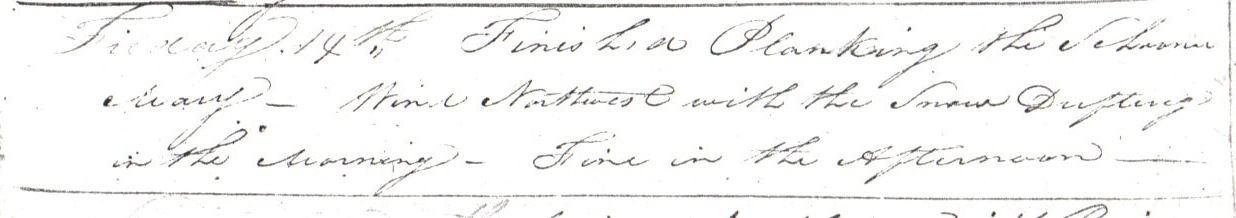 Friday 14th Finished Planking the Schooner
Mary - Wind Northwest with the Snow Drifting
in the Morning - Fine in the Afternoon